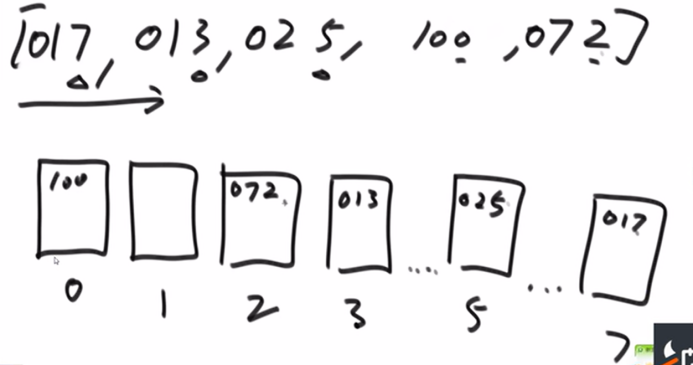 [017, 013, 025, 100, 072]
100 072 013 025 017
.... ...
0 1 2 3 5 7